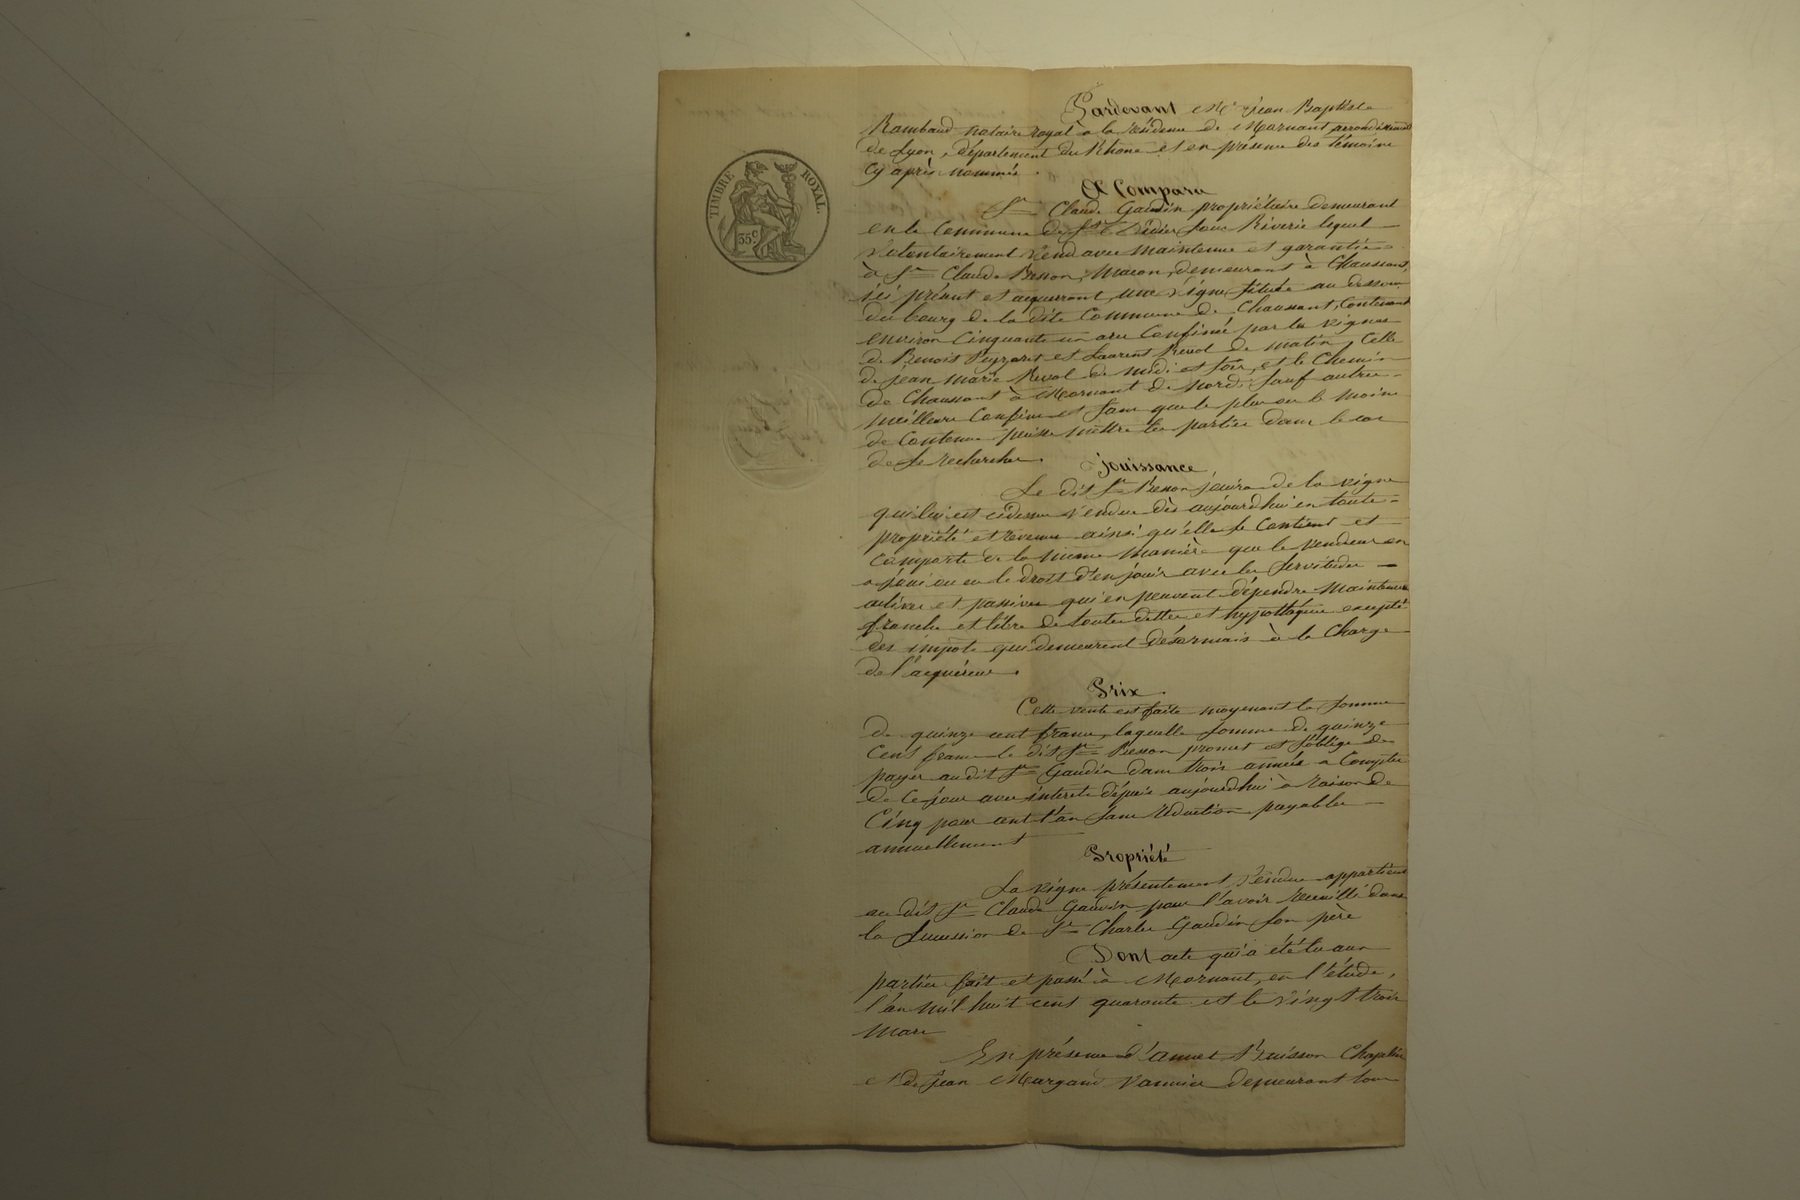 TIMBRE ROYAL.
35c
Pardevant Me jean Baptiste
Rambaud notaire royal à la résidence de Mornant arrondissement
de Lyon, département du Rhône et en présence des témoins
cy après nommés.
A Comparu
Sr Claude Gaudin propriétaire demeurant
en la Commune de St Didier sous Riverie lequel
volontairement vend avec maintenue et garantie
à Sr Claude Besson, Macon, demeurant à Chaussant,
ici présent et acquerrant, une vigne située au dessous
du bourg de la dite Commune de Chaussant, Contenant
environ Cinquante un ares Confiné par les vignes
de Benoit Peyzaret et Laurent Revol de matin, Celle
de jean marie Revol de midi et soir, et le Chemin
de Chaussant à Mornant de nord, sauf autres
meilleurs Confins et sans que le plus ou le moins
de Contenue puisse mettre les parties dans le cas
de se rechercher.
jouissance
Le dit Sr Besson jouira de la vigne
qui lui est cidessus vendue dès aujourdhui en toute
propriété et revenus ainsi qu'elle se Contient et
Comporte de la même manière que le vendeur en
a joui ou eu le droit d'en jouir avec les servitudes
actives et passives qui en peuvent dépendre maintenue
franche et libre de toutes dettes et hypothèques excepté
des impots qui demeurent désormais à la Charge
de l'acquéreur.
Prix
Cette vente est faite moyenant la somme
de quinze cent francs, laquelle somme de quinze
Cent francs le dit Sr Besson promet et s'oblige de
payer au dit Sr Gaudin dans trois années a Compter
de ce jour avec intérets dépuis aujourdhui à raison de
Cinq pour cent l'an sans réduction payables
annuellement
Propriété
La vigne présentement vendue appartient
au dit Sr Claude Gaudin pour l'avoir recueilli dans
la succession de Sr Charles Gaudin son père
Dont acte qui a été lu aux
parties fait et passé à Mornant, en l'étude,
l'an mil huit cent quarante et le vingt trois
Mars
En présence d'annet Buisson Chapelier
et de jean Margand Vannier demeurant tous